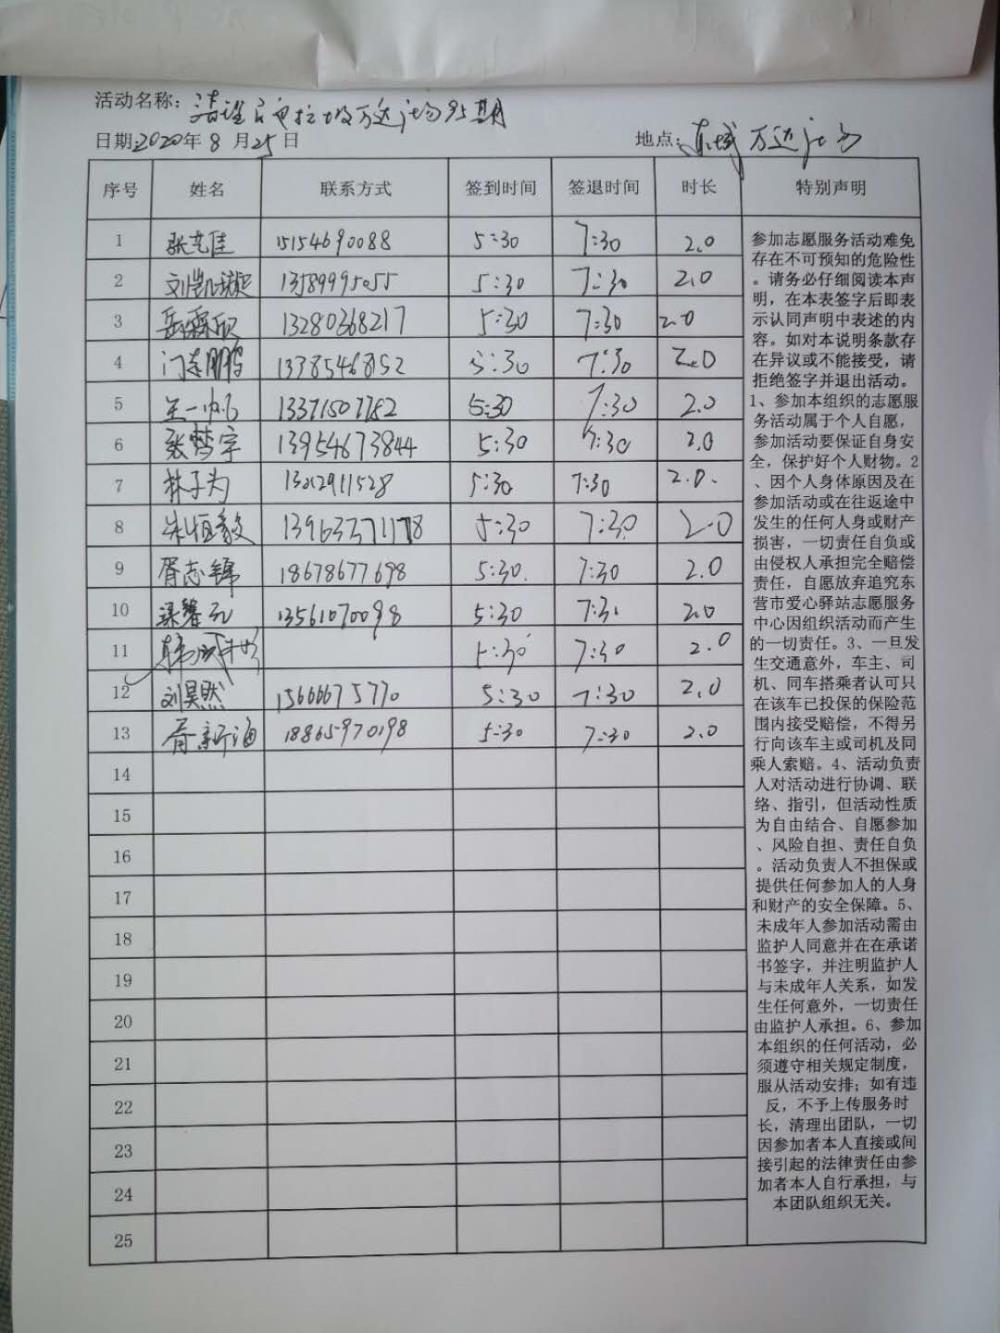 活动名称：清理白色垃圾万达广场95期
日期：2020年8月25日 地点：东城万达广场
序号 姓名 联系方式 签到时间 签退时间 时长 特别声明
1 张克佳 15154690088 5:30 7:30 2.0
2 刘凯 13589995055 5:30 7:30 2.0
3 岳霖欣 13280368217 5:30 7:30 2.0
4 门志鹏 13385468152 5:30 7:30 2.0
5 王一帆 13371507782 5:30 7:30 2.0
6 张梦宇 13954673844 5:30 7:30 2.0
7 林子为 13012911528 5:30 7:30 2.0.
8 朱恒毅 13963371178 5:30 7:30 2.0
9 胥志锦 18678677698 5:30 7:30 2.0
10 梁馨元 13561070098 5:30 7:30 2.0
11 5:30 7:30 2.0
12 刘昊然 15666675770 5:30 7:30 2.0
13 胥新海 18865970198 5:30 7:30 2.0
14
15
16
17
18
19
20
21
22
23
24
25
参加志愿服务活动难免
存在不可预知的危险性
。请务必仔细阅读本声
明，在本表签字后即表
示认同声明中表述的内
容。如对本说明条款存
在异议或不能接受，请
拒绝签字并退出活动。
1、参加本组织的志愿服
务活动属于个人自愿，
参加活动要保证自身安
全，保护好个人财物。2
、因个人身体原因及在
参加活动或在往返途中
发生的任何人身或财产
损害，一切责任自负或
由侵权人承担完全赔偿
责任，自愿放弃追究东
营市爱心驿站志愿服务
中心因组织活动而产生
的一切责任。3、一旦发
生交通意外，车主、司
机、同车搭乘者认可只
在该车已投保的保险范
围内接受赔偿，不得另
行向该车主或司机及同
乘人索赔。4、活动负责
人对活动进行协调、联
络、指引，但活动性质
为自由结合、自愿参加
、风险自担、责任自负
。活动负责人不担保或
提供任何参加人的人身
和财产的安全保障。5、
未成年人参加活动需由
监护人同意并在在承诺
书签字，并注明监护人
与未成年人关系，如发
生任何意外，一切责任
由监护人承担。6、参加
本组织的任何活动，必
须遵守相关规定制度，
服从活动安排；如有违
反，不予上传服务时
长，清理出团队，一切
因参加者本人直接或间
接引起的法律责任由参
加者本人自行承担，与
本团队组织无关。